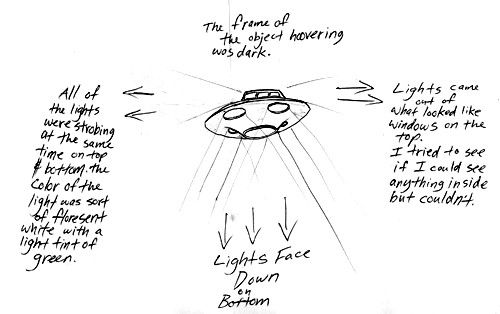 The frame of
the object hoovering
was dark.
All of
the lights
were strobing
at the same
time on top
& bottom. the
Color of the
light was sort
of, floresent
white with a
light tint of
green.
Lights came
out of
what looked like
windows on the
top.
I tried to see
if I could see
anything inside
but couldn't.
Lights Face
Down
on
Bottom